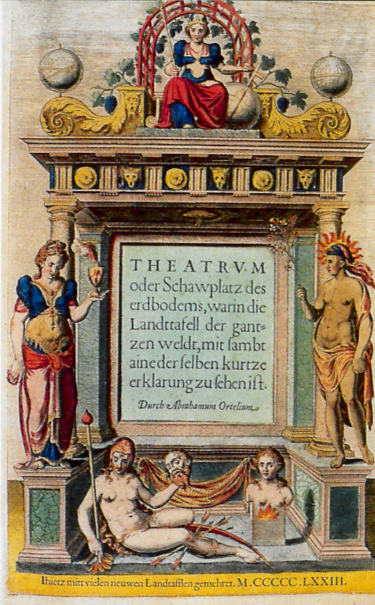 THEATRVM
oder Schawplatz des
erdbodems, warin die
Landttafell der gant=
zen weldt, mit sambt
aine der selben kurtze
erklarung zu sehen ist.
Durch Abrahamum Ortelium.
Ihietz mitt vielen neuwen Landtafflen gemehret. M.CCCCC.LXXIII.